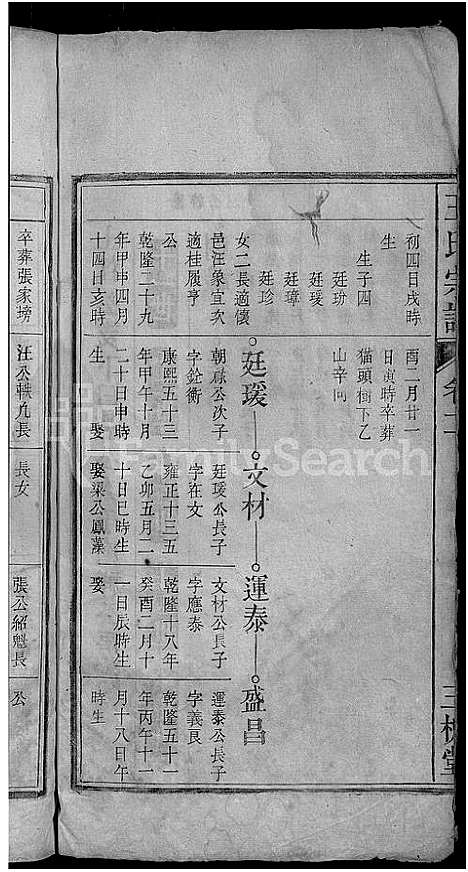 王氏宗譜
卷二
三槐堂
初四日戌時
生
生子四
廷玏
廷瑗
廷璋
廷珍
女二長適懷
邑汪象宜次
適桂履亨
公
乾隆二十九
年甲申四月
十四日亥時
酉二月廿一
日寅時卒葬
猫頭樹下乙
山辛向
廷瑗
文材
運泰
盛昌
朝祿公次子
字銓衡
康熙五十三
年甲午十月
二十日申時
生
娶
廷瑗公長子
字在文
雍正十三五
乙卯五月二
十日巳時生
娶梁公鳳藻
文材公長子
字應泰
乾隆十八年
癸酉二月十
一日辰時生
娶
運泰公長子
字義良
乾隆五十一
年丙午十一
月十八日午
時生
卒葬張家塝
汪公軼凡長
長女
張公紹魁長
公
FamilySearch